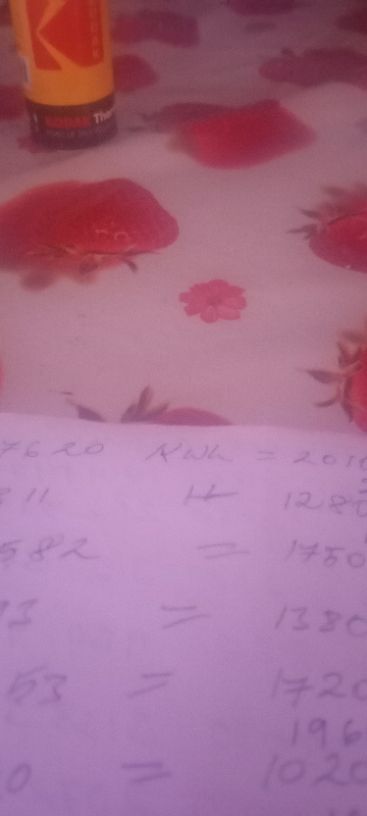 KODAK
7620 KWh = 2010
311 1280
582 = 1750
93 = 1380
53 = 1720
196
0 = 1020